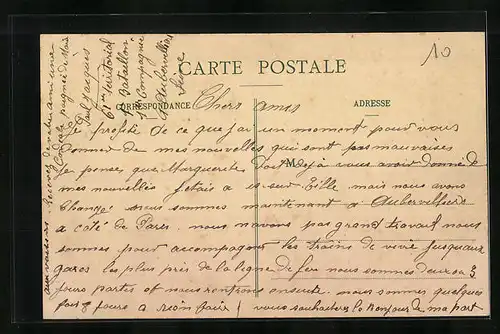 10
CARTE POSTALE
CORRESPONDANCE
ADRESSE
M
Chers amis
Je profite de ce que j'ai un moment pour vous
donner de mes nouvelles qui sont pas mauvaises
je penses que Marguerite doit deja vous avoir donné de
mes nouvelles j'etais a is-sur-Tille mais nous avons
changé nous sommes maintenant a Aubervilliers
a coté de Paris nous navons pas grand travail nous
sommes pour accompagner les trains de vivre jusquaux
gares les plus près de la ligne de feu nous sommes deux ou 3
jours partes et nous rentrons ensuite nous sommes quelques
fois 8 jours a rien faire vous souhaiterez le Bonjour de ma part
aux voisins. Recevez de votre ami une
Cordiale poignée de Main
Paul Jacques
61me territorial
Bataillon
Compagnie
Aubervilliers
Seine